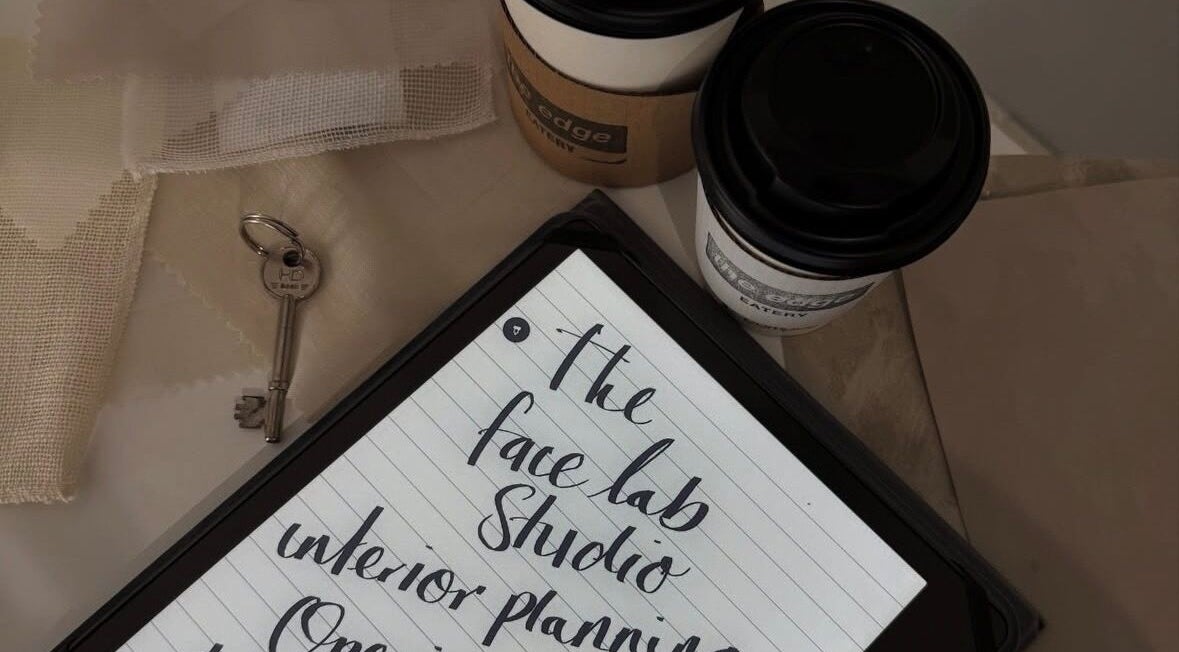 the edge
EATERY
the edge
EATERY
HD
The
face lab
Studio
interior planning